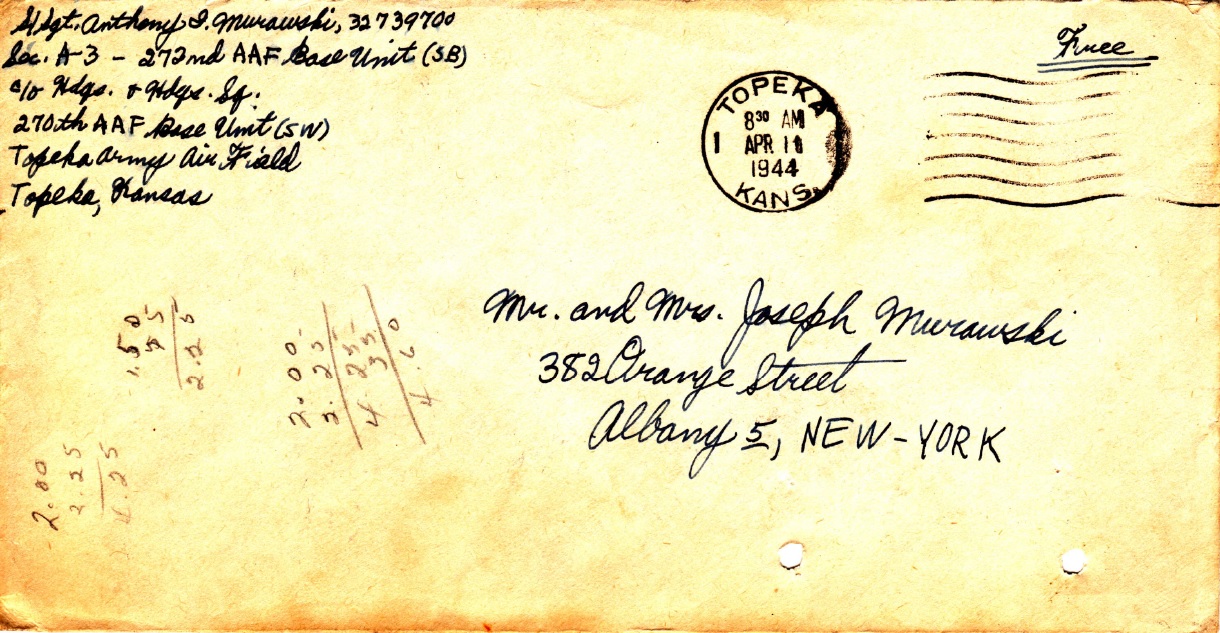 S/Sgt. Anthony I. Murawski, 32739700
Sec. A-3 - 272nd AAF Base Unit (SB)
c/o Hdqs. & Hdqs. Sq.
270th AAF Base Unit (SW)
Topeka Army Air Field
Topeka, Kansas
Free
TOPEKA
8 30 AM
1 APR 11
1944
KANS.
Mr. and Mrs. Joseph Murawski
382 Orange Street
Albany 5, NEW-YORK
1.50
75
2.25
2.00
2.25
4.25
35
4.60
2.00
2.25
4.25